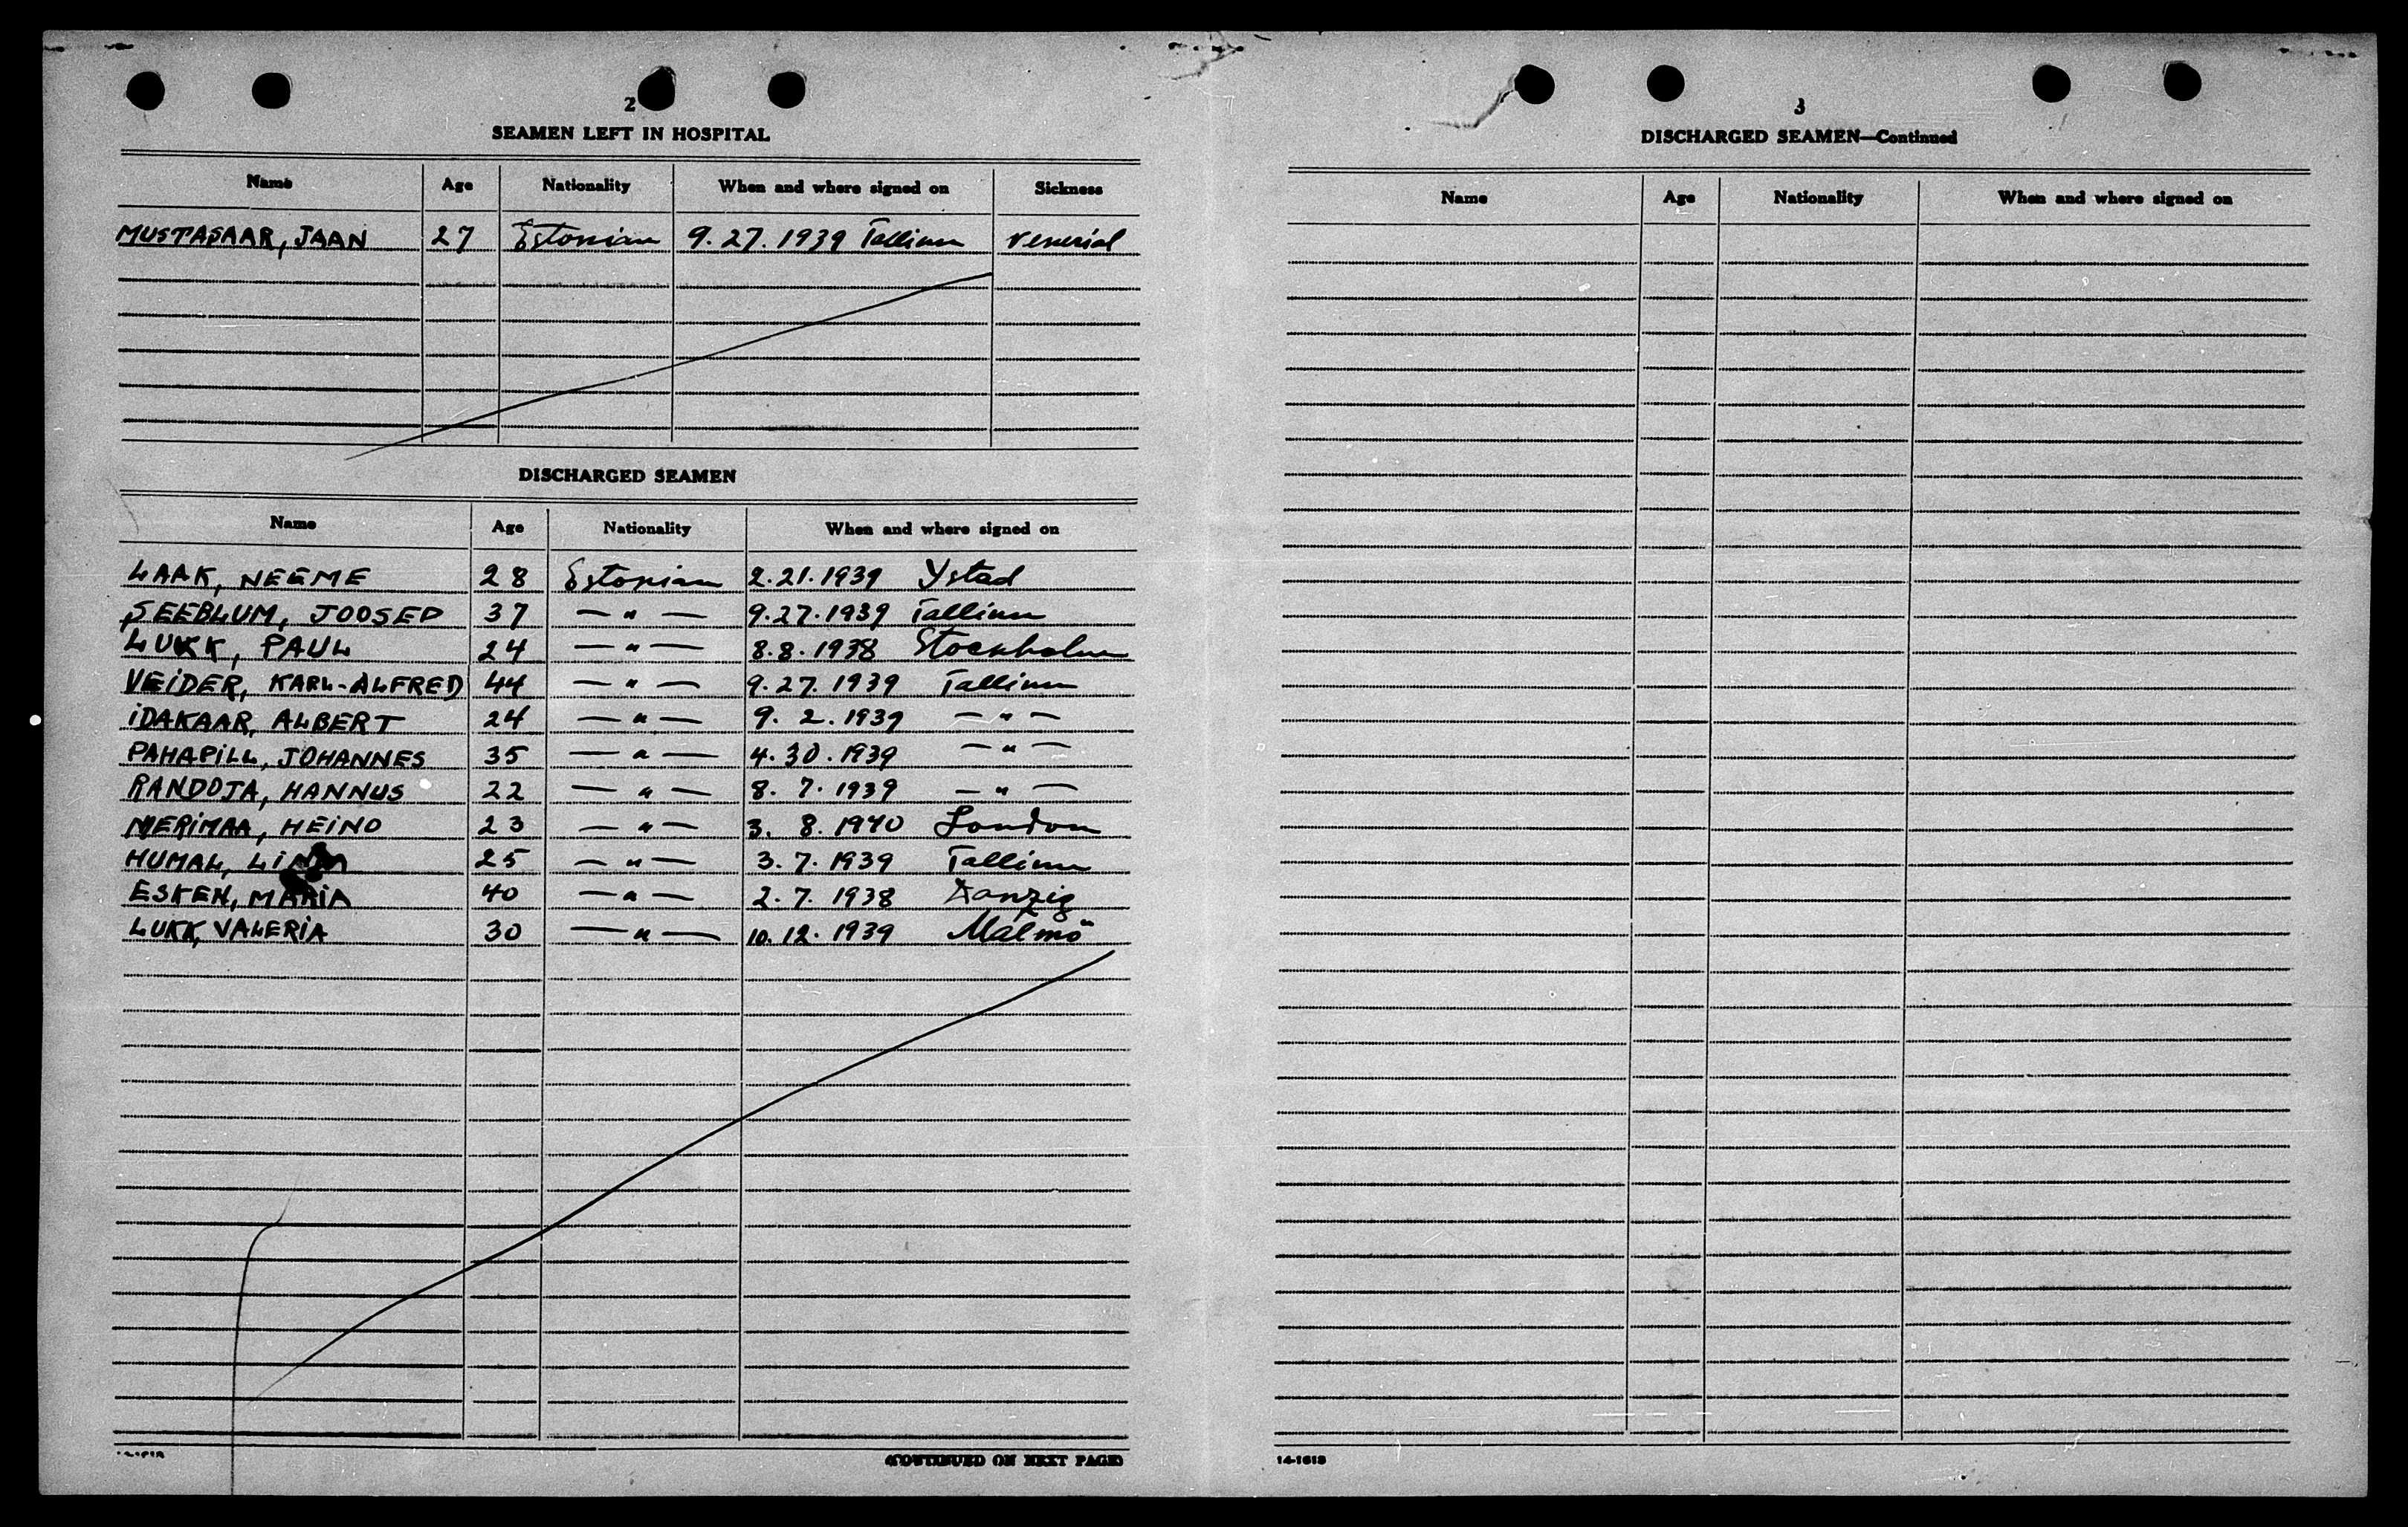 2
SEAMEN LEFT IN HOSPITAL
Name Age Nationality When and where signed on Sickness
MUSTASAAR, JAAN 27 Estonian 9.27.1939 Tallinn venerial
DISCHARGED SEAMEN
Name Age Nationality When and where signed on
LAAK, NEEME 28 Estonian 2.21.1939 Ystad
SEEBLUM, JOOSEP 37 — " — 9.27.1939 Tallinn
LUKK, PAUL 24 — " — 8.8.1938 Stockholm
VEIDER, KARL-ALFRED 44 — " — 9.27.1939 Tallinn
IDAKAAR, ALBERT 24 — " — 9.2.1939 — " —
PAHAPILL, JOHANNES 35 — " — 4.30.1939 — " —
RANDOJA, HANNUS 22 — " — 8.7.1939 — " —
MERIMAA, HEINO 23 — " — 3.8.1940 London
HUMAL, 25 — " — 3.7.1939 Tallinn
ESKEN, MARIA 40 — " — 2.7.1938 Danzig
LUKK, VALERIA 30 — " — 10.12.1939 Malmö
(CONTINUED ON NEXT PAGE)
3
DISCHARGED SEAMEN—Continued
Name Age Nationality When and where signed on
14-1613